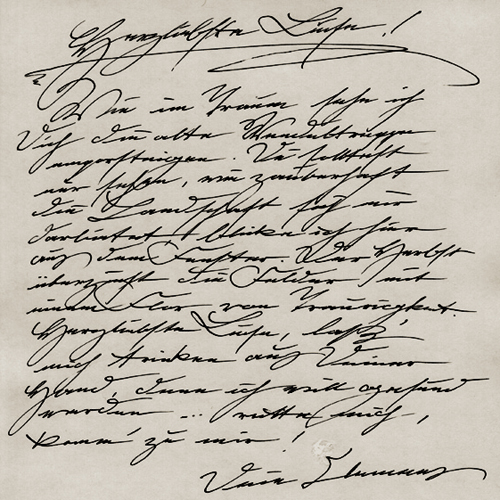 Herzliebste Luise!
Wie im Traum sehe ich
Dich die alte Wendeltreppe
emporsteigen. Du solltest
nur sehen, wie zauberhaft
die Landschaft sich mir
darbietet, blicke ich hier
aus dem Fenster. Der Herbst
überzieht die Felder mit
einem Flor von Traurigkeit.
Herzliebste Luise, lass'
mich trinken aus Deiner
Hand, denn ich will gesund
werden ... rette mich,
komm' zu mir!
Dein